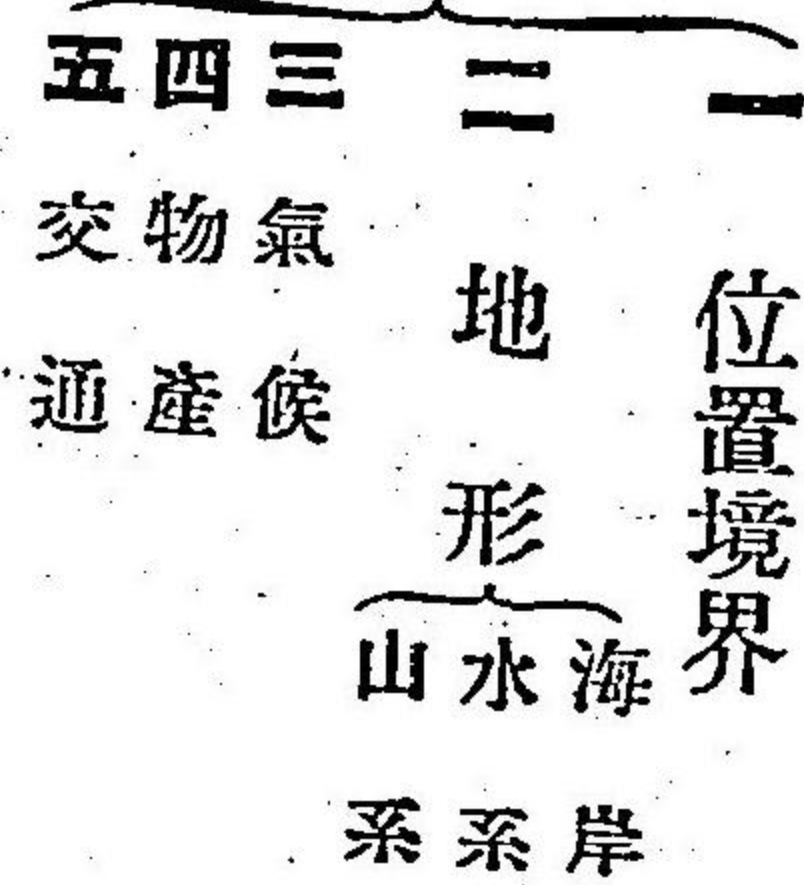 一 位置境界
二 地形
海岸
水系
山系
三 氣候
四 物產
五 交通